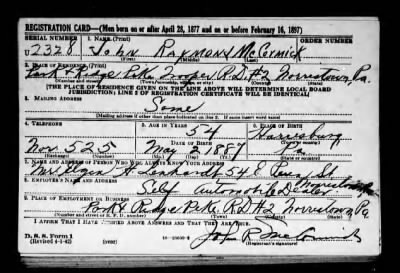 REGISTRATION CARD—(Men born on or after April 28, 1877 and on or before February 16, 1897)
SERIAL NUMBER 1. NAME (Print) ORDER NUMBER
U 2328 John Raymond McCormick
(First) (Middle) (Last)
2. PLACE OF RESIDENCE (Print)
Park Ridge Pike Trooper R.D. #2 Norristown, Pa.
(Number and street) (Town, township, village, or city) (County) (State)
[THE PLACE OF RESIDENCE GIVEN ON THE LINE ABOVE WILL DETERMINE LOCAL BOARD
JURISDICTION; LINE 2 OF REGISTRATION CERTIFICATE WILL BE IDENTICAL]
3. MAILING ADDRESS
Same
[Mailing address if other than place indicated on line 2. If same insert word same]
4. TELEPHONE 5. AGE IN YEARS 6. PLACE OF BIRTH
54 Harrisburg
DATE OF BIRTH (Town or county)
Nor 525 2 1887 Pa
(Exchange) (Number) (Mo.) (Day) (Yr.) (State or country)
7. NAME AND ADDRESS OF PERSON WHO WILL ALWAYS KNOW YOUR ADDRESS
Mr H. Lenhardt 54 E. Penn St.
Norristown Pa
8. EMPLOYER'S NAME AND ADDRESS
Self Automobile Dealer
9. PLACE OF EMPLOYMENT OR BUSINESS
Ridge Pike R.D. #2 Norristown Pa
(Number and street or R. F. D. number) (Town) (County) (State)
I AFFIRM THAT I HAVE VERIFIED ABOVE ANSWERS AND THAT THEY ARE TRUE.
D. S. S. Form 1
(Revised 4-1-42) (over) John R McCormick